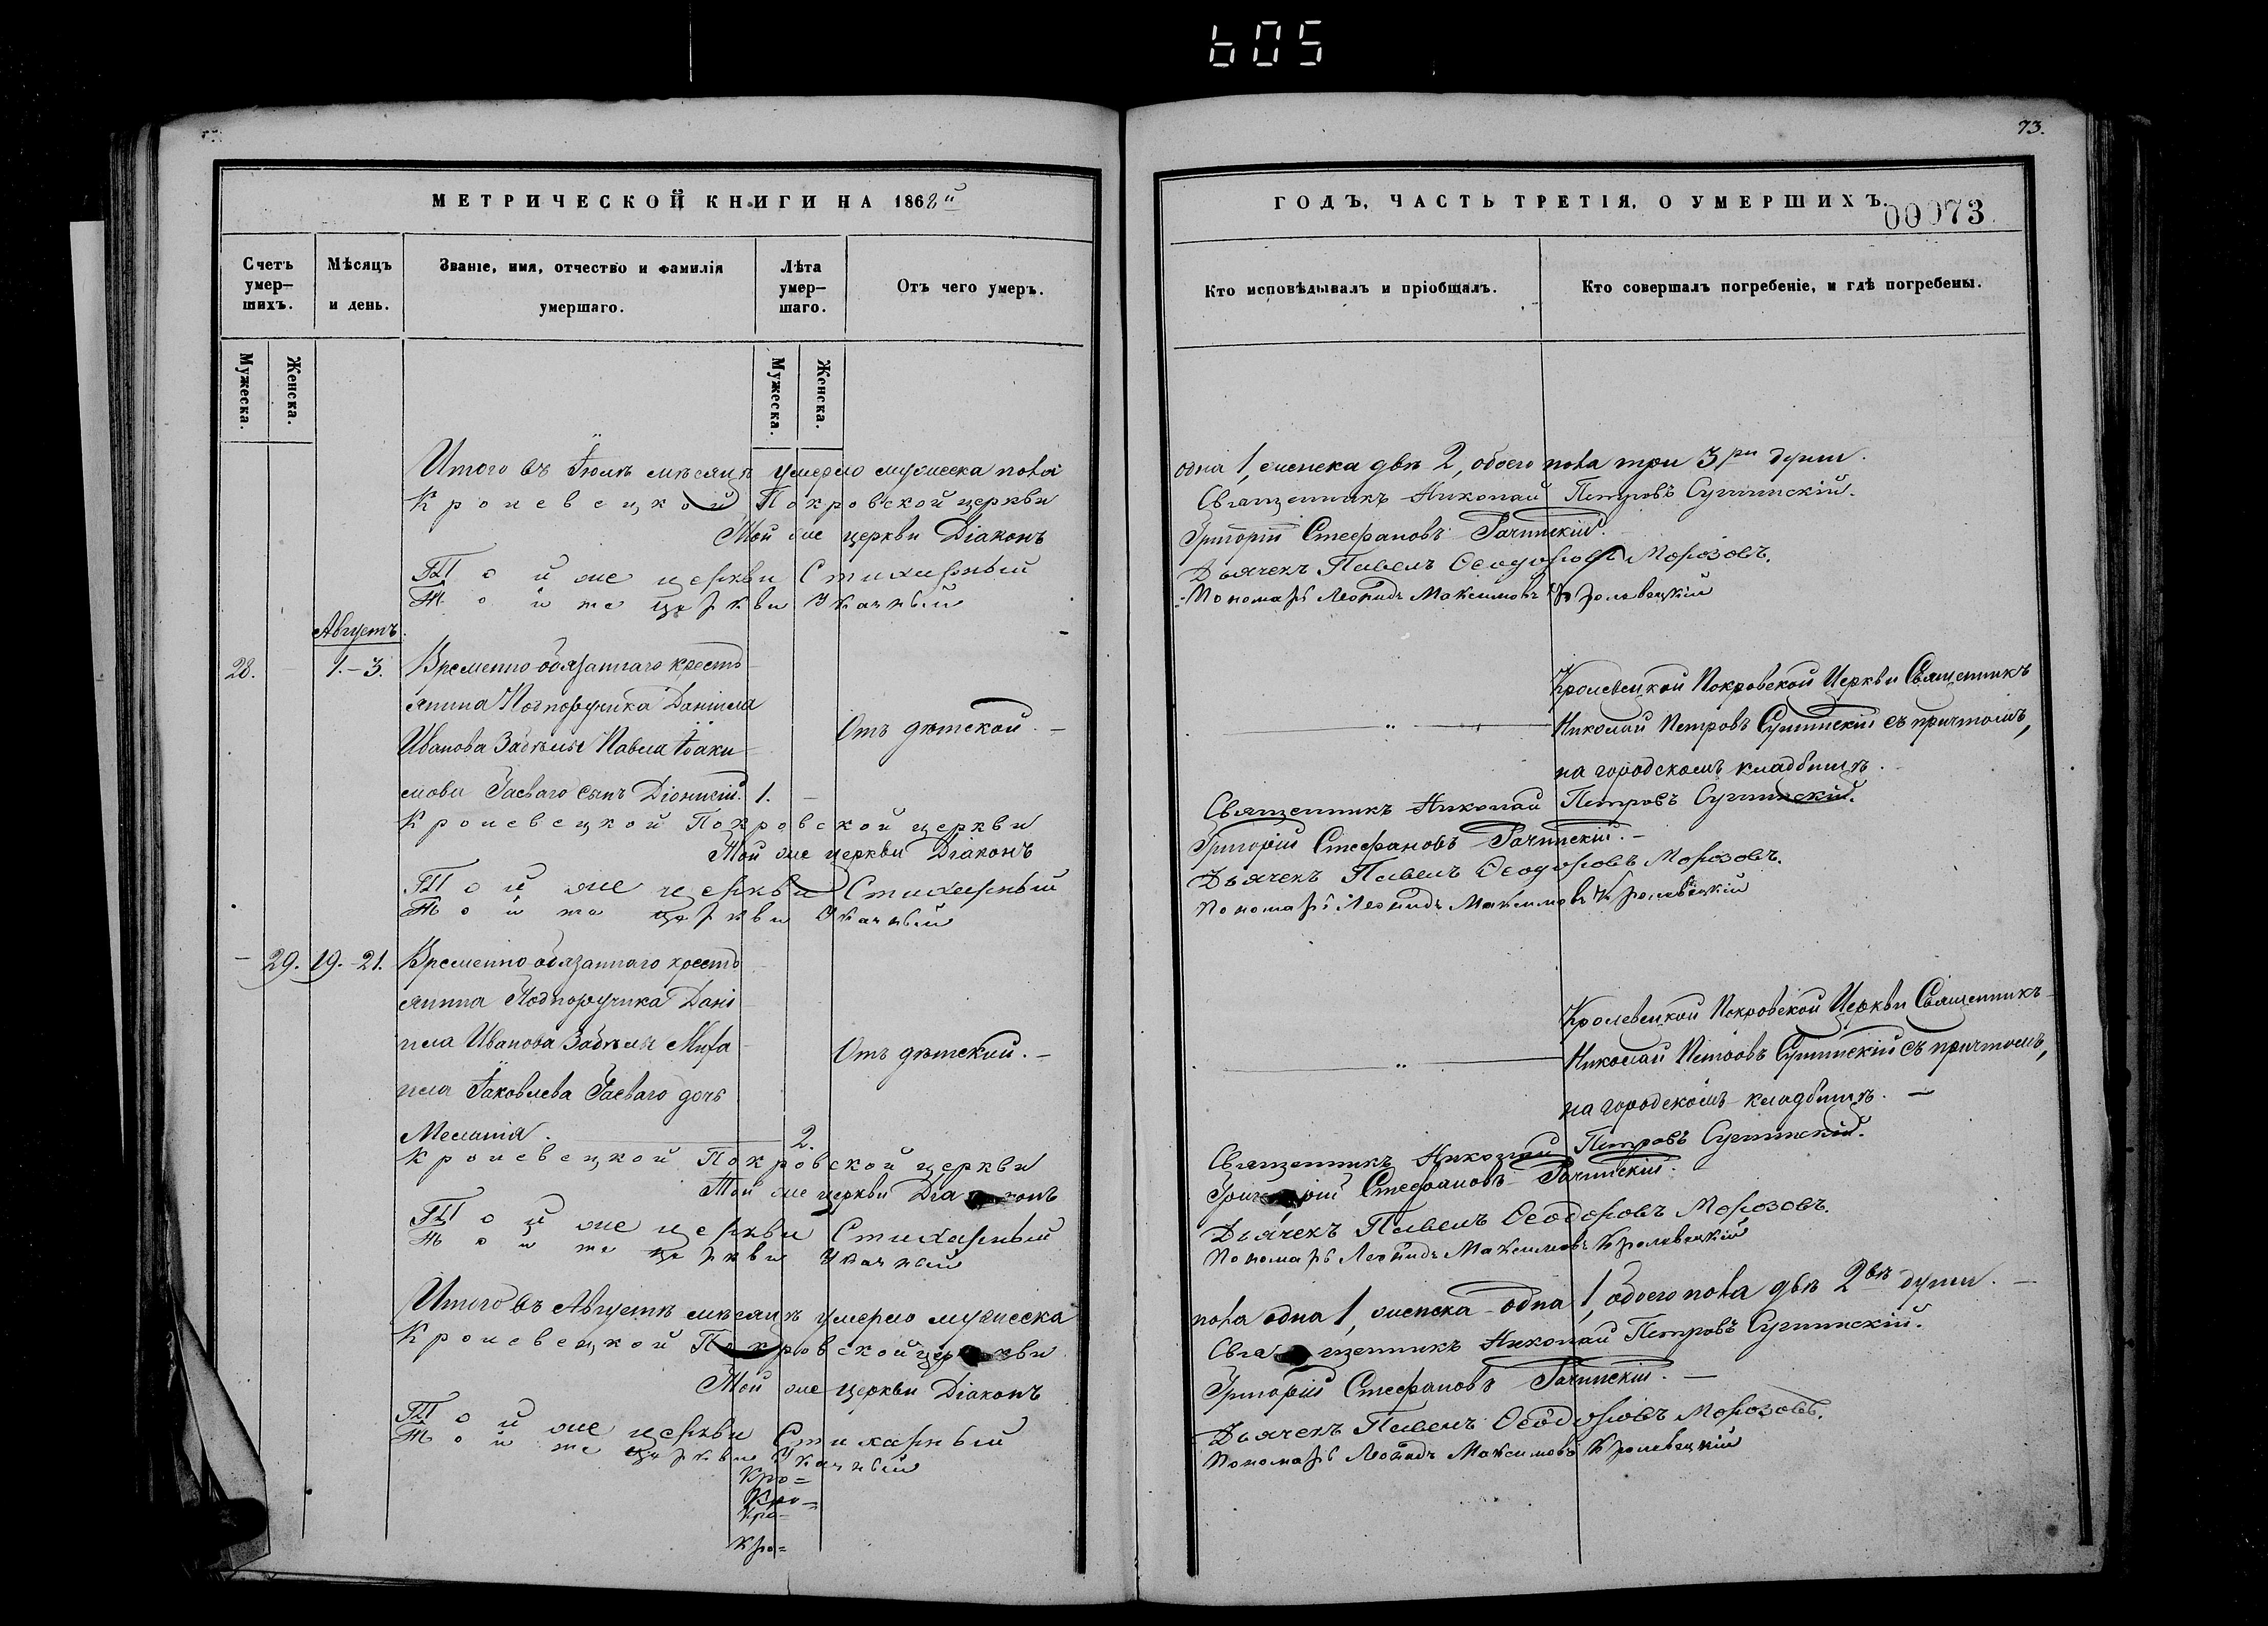 605
73.
МЕТРИЧЕСКОЙ КНИГИ НА 1868й
ГОДЪ, ЧАСТЬ ТРЕТІЯ, О УМЕРШИХЪ.
00073
Счетъ умер-шихъ.
Мѣсяцъ и день.
Званіе, имя, отчество и фамилія умершаго.
Лѣта умер-шаго.
Отъ чего умеръ.
Кто исповѣдывалъ и пріобщалъ.
Кто совершалъ погребеніе, и гдѣ погребены.
Мужеска.
Женска.
Мужеска.
Женска.
Итого въ Іюлѣ мѣсяцѣ умерло мужеска пола одна 1, женска двѣ 2, обоего пола три 3ри души.
Кролевецкой Покровской церкви Священникъ Николай Петровъ
Той же церкви Діаконъ Григорій Стефановъ
Той же церкви Стихарный Дьячекъ Павелъ Ѳеодоровъ Морозовъ.
Той же церкви Указный Пономарь Леонидъ Максимовъ Кролевецкій
Августъ.
28. - 1.-3. Временно-обязаннаго кресть-
янина Подпоручика Даніила
Иванова Забѣлы Павла Іоаки-
мова Гаеваго сынъ Діонисій. 1. -
Отъ дѣтской. -
Кролевецкой Покровской Церкви Священникъ
Николай Петровъ съ причтомъ,
на городскомъ кладбищѣ.
Кролевецкой Покровской церкви Священникъ Николай Петровъ
Той же церкви Діаконъ Григорій Стефановъ
Той же церкви Стихарный Дьячекъ Павелъ Ѳеодоровъ Морозовъ.
Той же церкви Указный Пономарь Леонидъ Максимовъ Кролевецкій
- 29. 19.-21. Временно-обязаннаго кресть-
янина Подпоручика Дані-
ила Иванова Забѣлы Миха-
ила Іаковлева Гаеваго дочь
Меланія. 2.
Отъ дѣтской. -
Кролевецкой Покровской Церкви Священникъ
Николай Петровъ съ причтомъ,
на городскомъ кладбищѣ. -
Кролевецкой Покровской церкви Священникъ Николай Петровъ
Той же церкви Діаконъ Григорій Стефановъ
Той же церкви Стихарный Дьячекъ Павелъ Ѳеодоровъ Морозовъ.
Той же церкви Указный Пономарь Леонидъ Максимовъ Кролевецкій
Итого въ Августѣ мѣсяцѣ умерло мужеска пола одна 1, женска одна 1, обоего пола двѣ 2вѣ души. -
Кролевецкой Покровской церкви Священникъ Николай Петровъ
Той же церкви Діаконъ Григорій Стефановъ
Той же церкви Стихарный Дьячекъ Павелъ Ѳеодоровъ Морозовъ.
Той же церкви Указный Пономарь Леонидъ Максимовъ Кролевецкій
Кро=
Кро=
Кро=
Кро=